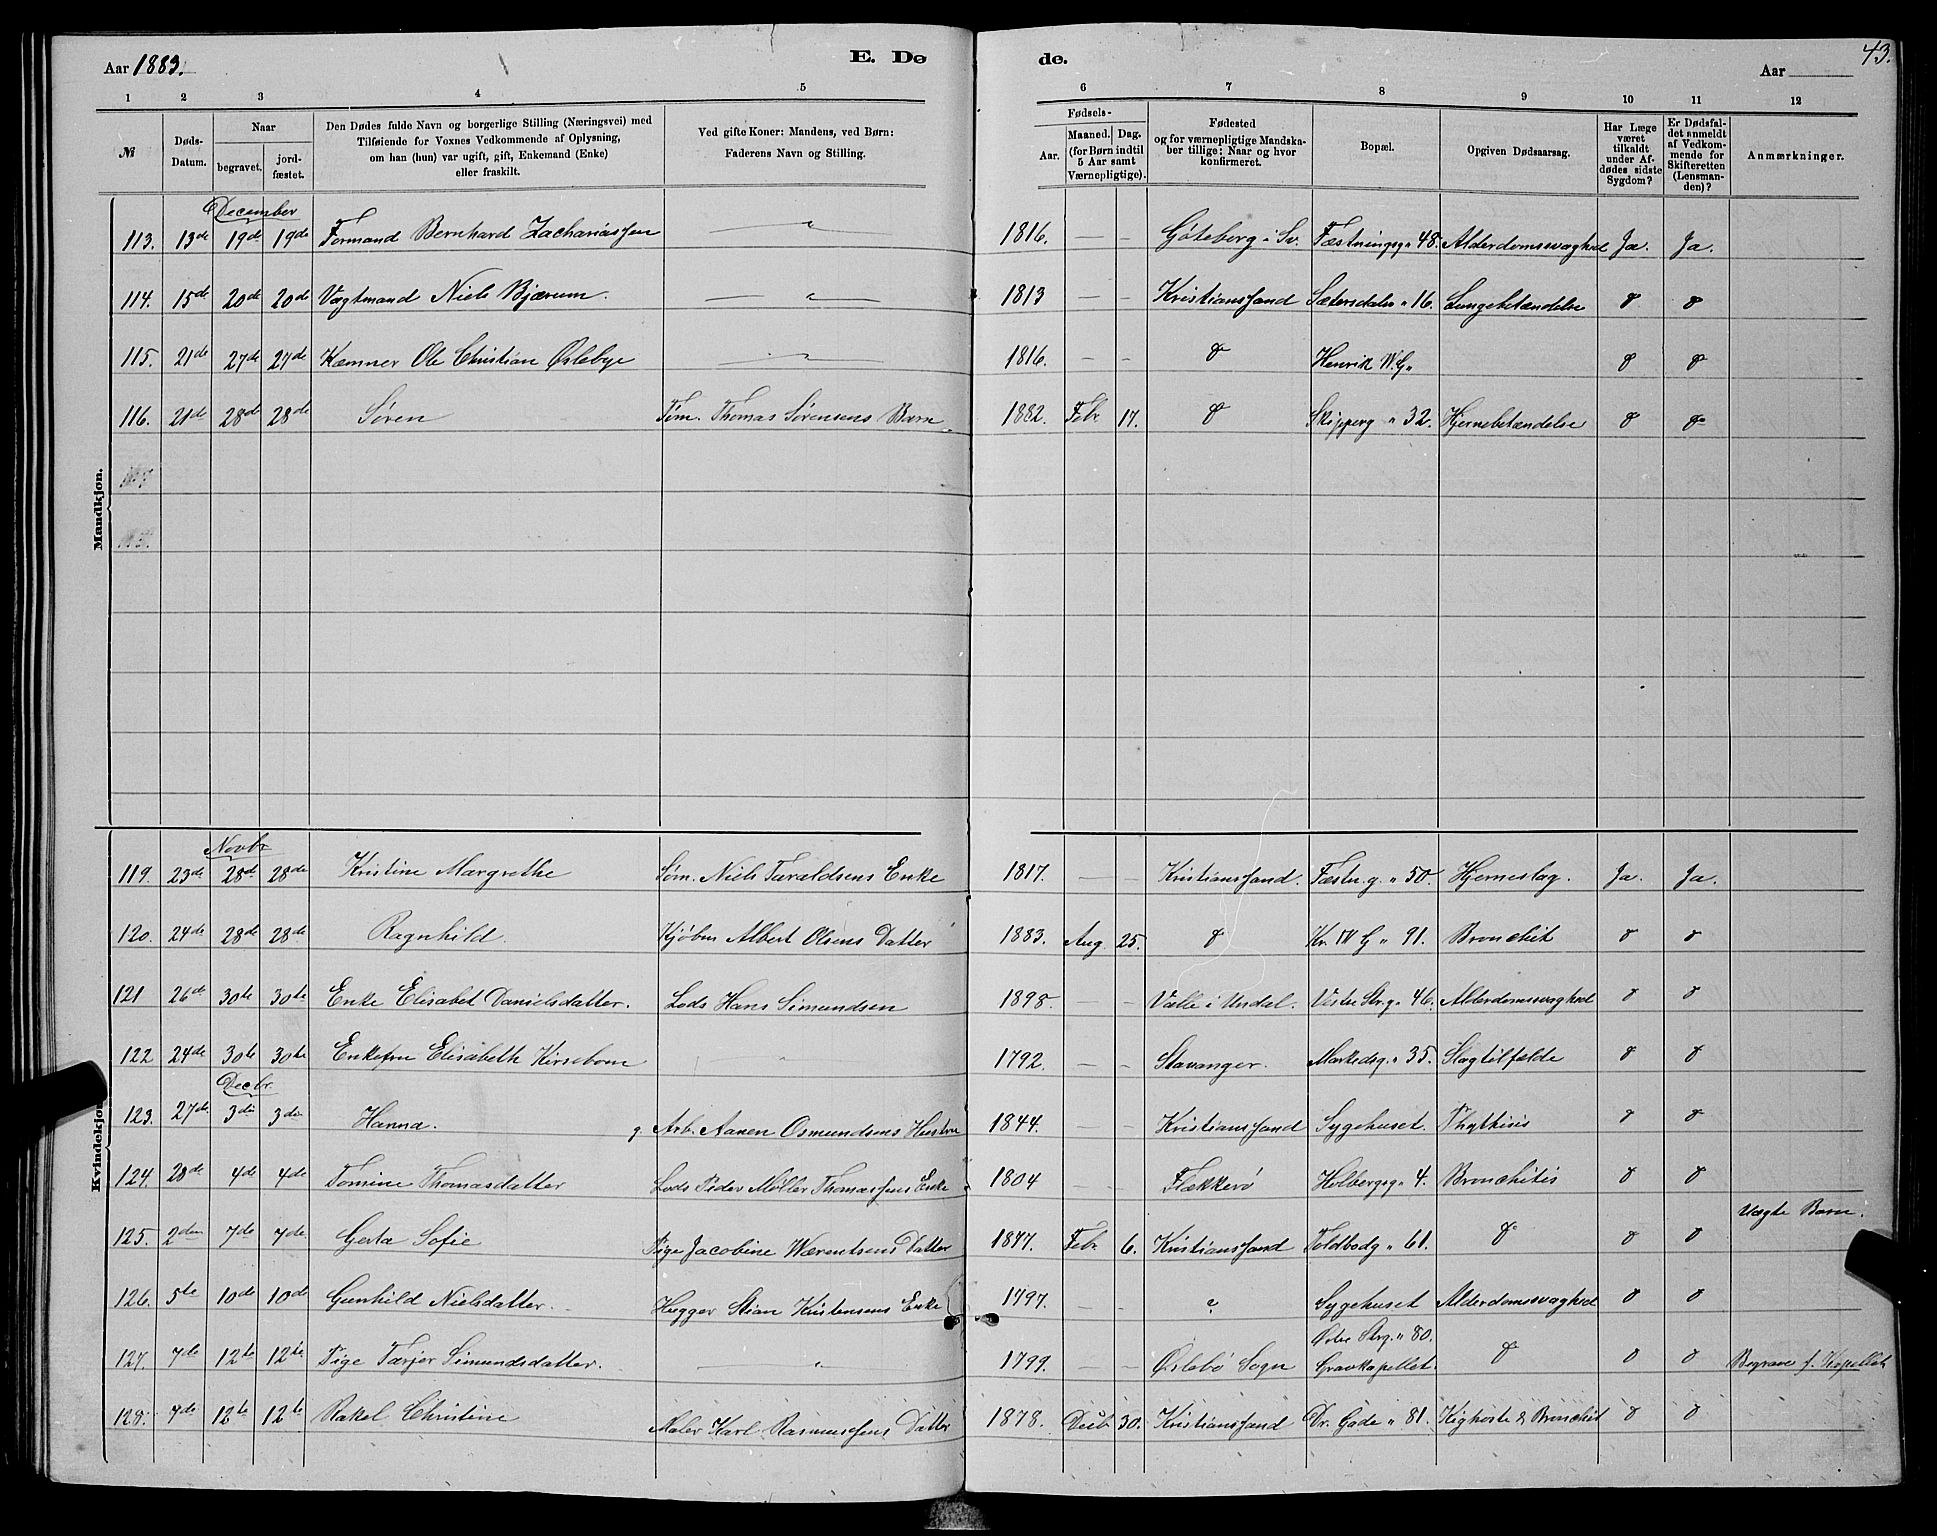 Aar 1883.
E. Dø
de.
43.
Aar
1 2 3 4 5 6 7 8 9 10 11 12
№
Døds-Datum.
Naar
begravet.
jordfæstet.
Den Dødes fulde Navn og borgerlige Stilling (Næringsvei) med
Tilføiende for Voxnes Vedkommende af Oplysning,
om han (hun) var ugift, gift, Enkemand (Enke)
eller fraskilt.
Ved gifte Koner: Mandens, ved Børn:
Faderens Navn og Stilling.
Fødsels-
Aar.
Maaned. Dag.
(for Børn indtil
5 Aar samt
Værnepligtige).
Fødested
og for værnepligtige Mandska-
ber tillige: Naar og hvor
konfirmeret.
Bopæl.
Opgiven Dødsaarsag.
Har Læge
været
tilkaldt
under Af-
dødes sidste
Sygdom?
Er Dødsfal-
det anmeldt
af Vedkom-
mende for
Skifteretten
(Lensman-
den)?
Anmærkninger.
Mandkjøn.
December
113. 13de 19de 19de Formand Bernhard Zachariassen " 1816. — — Gøteborg i Sv. Fæstningsg " 48. Alderdomssvaghed Ja. Ja.
114. 15de 20de 20de Vægtmand Niels Bjærum. " 1813 — — Kristianssand Sætersdalsv " 16. Lungebetændelse d d
115. 21de 27de 27de Kæmner Ole Christian Øslebye " 1816. — — d Henrik W. G " d d
116. 21de 28de 28de Søren Tøm. Thomas Sørensens Barn. 1882. Febr 17. d Skipperg " 32. Hjernebetændelse d d
Kvindekjøn.
Novbr
119. 23de 28de 28de Kristine Margrethe Søm. Niels Taraldsens Enke 1817. — — Kristianssand. Fæstn. g. " 50. Hjerneslag. Ja. Ja.
120. 24de 28de 28de Ragnhild. Kjøbm Albert Olsens Datter 1883. Aug. 25. d Kr. IV G " 91. Bronchit d d
121 26de 30te 30te Enke Elisabet Danielsdatter. Lods Hans Simundsen 1898. — — Valle i Undal. Vestre Str. g " 46. Alderdomssvaghed d d
122 24de 30te 30te Enkefru Elisabeth Kirsebom " 1792. — — Stavanger. Markedsg. " 35. Slagtilfælde d d
Decbr.
123. 27de 3die 3die Hanna. g. Arb. Aanen Osmundsens Hustru 1844. — Kristianssand Sygehuset. Phythisis d d
124. 28de 4de 4de Tomine Thomasdatter Lods Peder Møller Thomassens Enke 1804 — — Flækkerø Holbergsg " 4. Bronchitis d d
125. 2den 7de 7de Gerta Sofie Pige Jacobine Wærentsens Datter 1877. Febr 6. Kristianssand Toldbodg " 61. d d d Uægte Barn.
126. 5te 10de 10de Gunhild Nielsdatter. Hugger Stian Kristensens Enke 1797. — — ? Sygehuset Alderdomssvaghed d d
127. 7de 12te 12te Pige Tarjer Simundsdatter. " 1799. — — Øslebø Sogn Østre Strg. " 80. Gravkapellet. d d d Begravet f. Kapellet
128. 7de 12te 12te Rakel Christine Maler Karl Rasmussens Datter 1878. Decb 30. Kristianssand Dr. Gade " 81. Kighoste & Bronchit d d